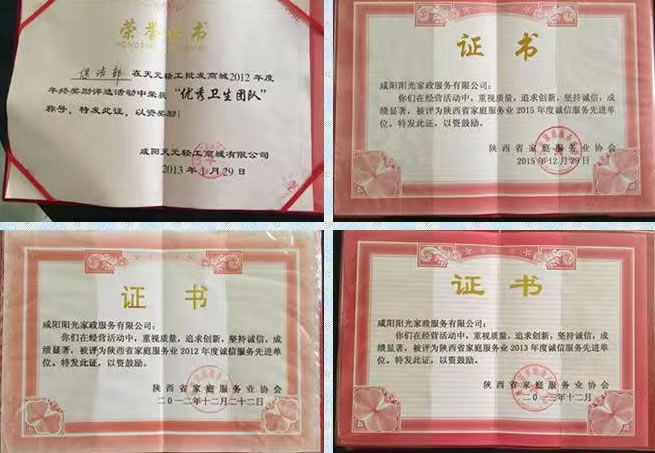 荣誉证书
保洁部 在天元轻工批发商城2012年度
年终奖励评选活动中荣获“优秀卫生团队”
称号,特发此证,以资奖励!
咸阳天元轻工商城有限公司
2013年1月29日
证书
咸阳阳光家政服务有限公司:
你们在经营活动中,重视质量,追求创新,坚持诚信,成
绩显著,被评为陕西省家庭服务业2015年度诚信服务先进单
位。特发此证,以资鼓励。
陕西省家庭服务业协会
2015年12月29日
证书
咸阳阳光家政服务有限公司:
你们在经营活动中,重视质量,追求创新,坚持诚信,成
绩显著,被评为陕西省家庭服务业2012年度诚信服务先进单
位。特发此证,以资鼓励。
陕西省家庭服务业协会
二〇一二年十二月二十二日
证书
咸阳阳光家政服务有限公司:
你们在经营活动中,重视质量,追求创新,坚持诚信,成
绩显著,被评为陕西省家庭服务业2013年度诚信服务先进单
位。特发此证,以资鼓励。
陕西省家庭服务业协会
二〇一三年十二月